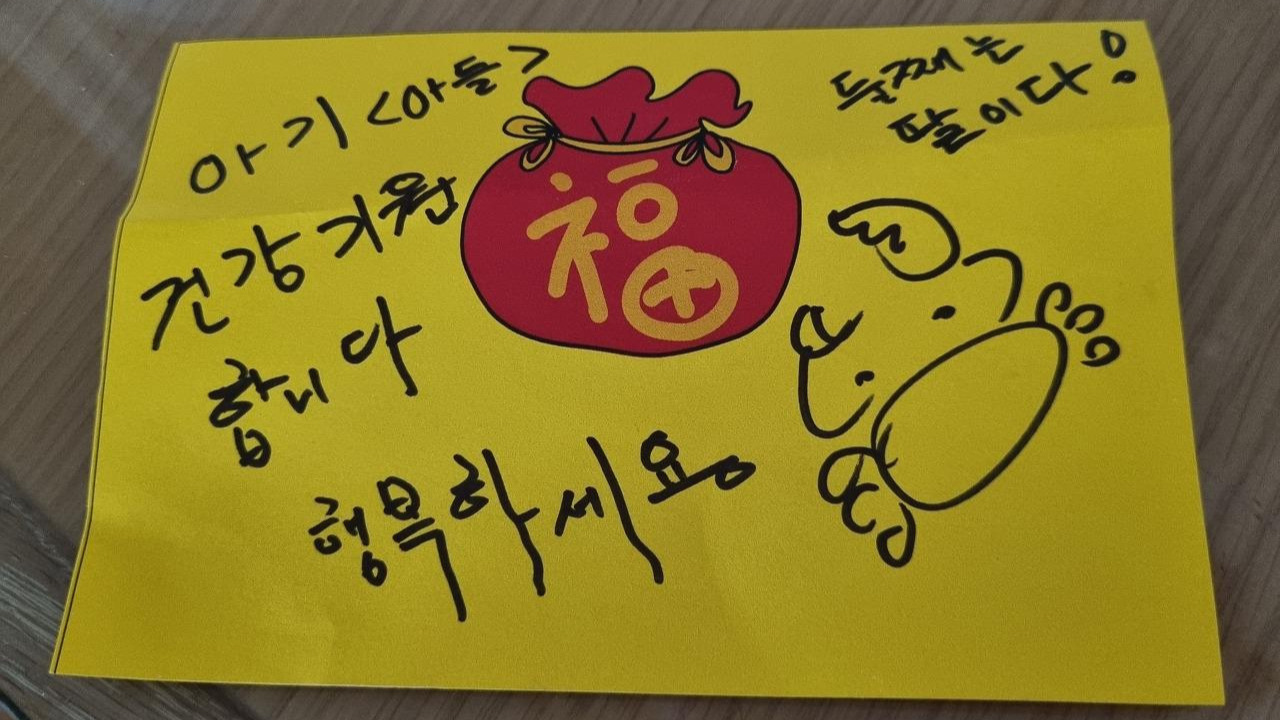 아기 <아들>
건강기원
합니다
행복하세용
福
둘째는
딸이다!